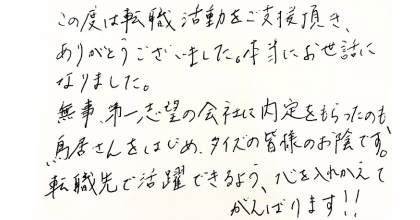 この度は転職活動をご支援頂き、
ありがとうございました。本当にお世話に
なりました。
無事、第一志望の会社に内定をもらったのも、
鳥居さんをはじめ、タイズの皆様のお陰です。
転職先で活躍できるよう、心を入れかえて
がんばります!!